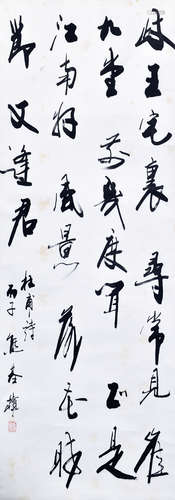 岐王宅裏尋常見崔
九堂前幾度聞正是
江南好風景落花時
節又逢君
杜甫詩
丙子熊